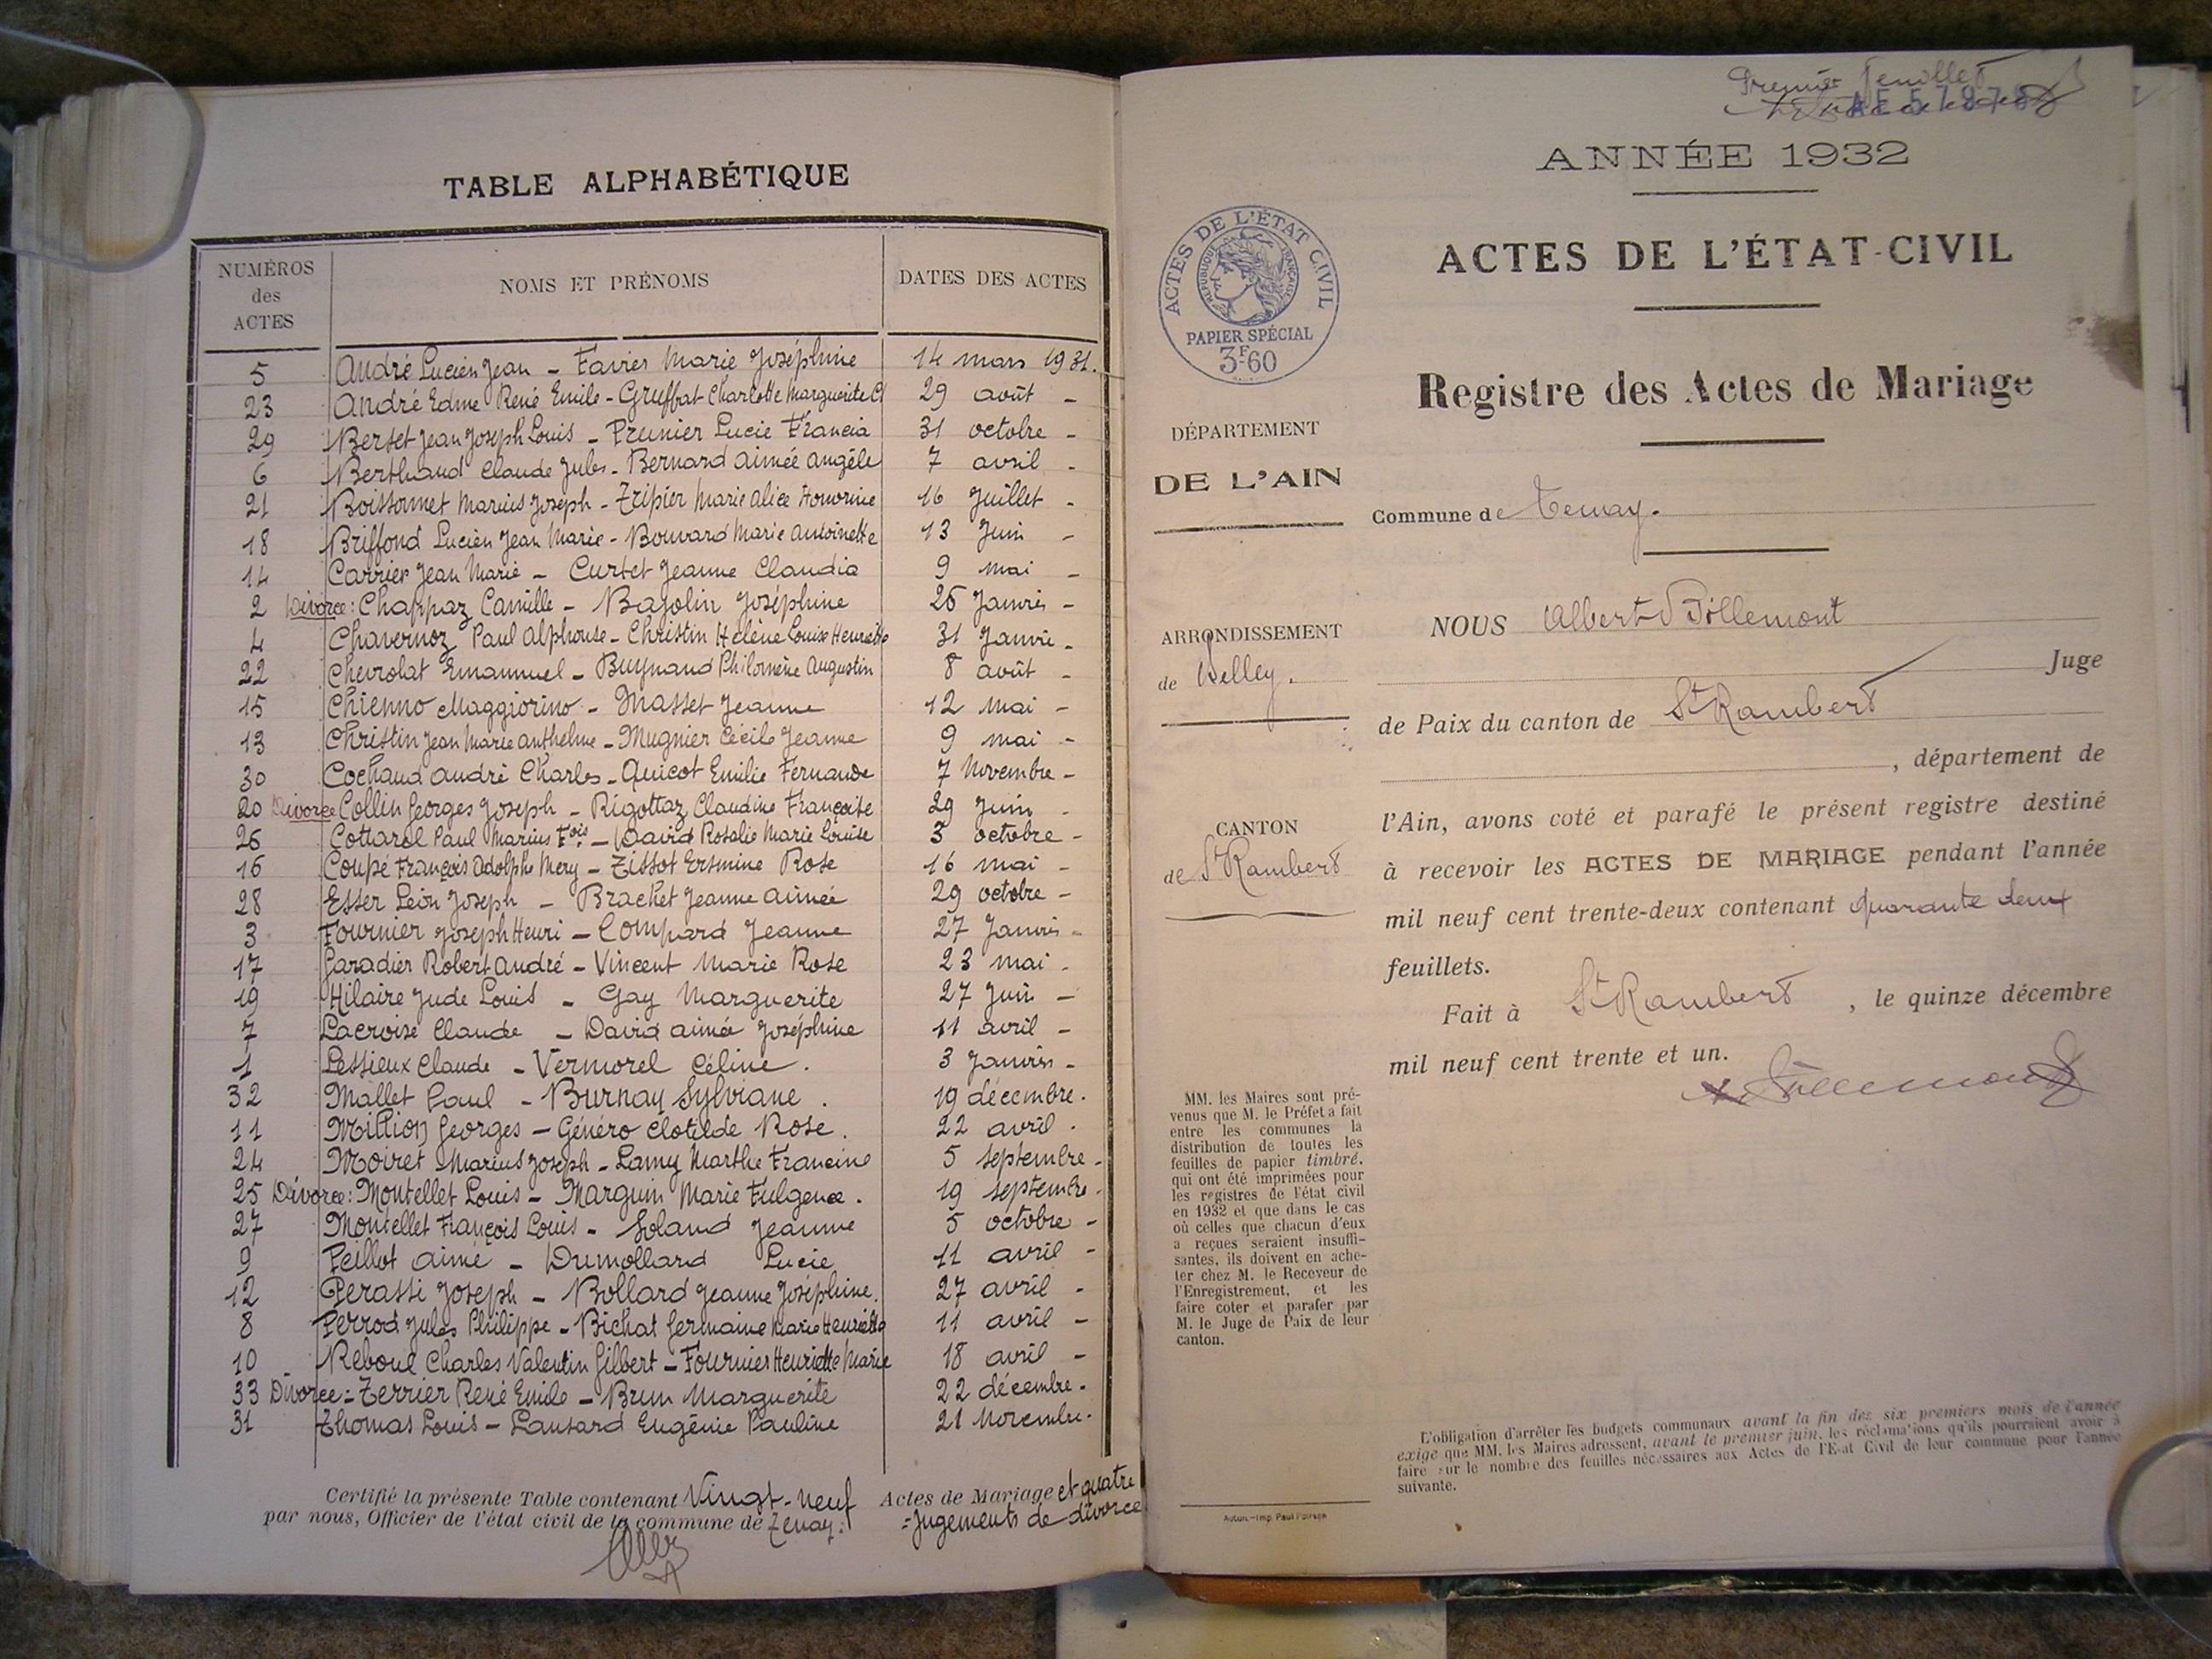 TABLE ALPHABÉTIQUE
NUMÉROS des ACTES NOMS ET PRÉNOMS DATES DES ACTES
5 André Lucien Jean - Favier Marie Joséphine 14 mars 1931.
23 André Edme René Emile - Gruffat Charlotte Marguerite Cl 29 août -
29 Berset Jean Joseph Louis - Prunier Lucie Francia 31 octobre -
6 Berthaud Claude Jules - Bernard Aimée Angèle 7 avril -
21 Boissonnet Marius Joseph - Tripier Marie Alice Honorine 16 Juillet -
18 Briffond Lucien Jean Marie - Bouvard Marie Antoinette 13 Juin -
14 Carrier Jean Marie - Curtet Jeanne Claudia 9 mai -
2 Divorce: Chappaz Camille - Bajolin Joséphine 26 Janvier -
4 Chavernoz Paul Alphonse - Christin Hélène Louise Henriette 31 Janvier -
22 Chevrolat Emannuel - Buynand Philomène Augustin 8 août -
15 Chienno Maggiorino - Masset Jeanne 12 mai -
13 Christin Jean Marie Anthelme - Mugnier Cécile Jeanne 9 mai -
30 Cochaud André Charles - Quicot Emilie Fernande 7 Novembre -
20 Divorce Collin Georges Joseph - Rigottaz Claudine Françoise 29 Juin -
26 Cottarel Paul Marius Fois - David Rosalie Marie Louise 3 octobre -
16 Coupé François Adolphe Mery - Tissot Ermine Rose 16 mai -
28 Esser Léon Joseph - Brachet Jeanne Aimée 29 octobre -
3 Fournier Joseph Henri - Compard Jeanne 27 Janvier -
17 Garadier Robert André - Vincent Marie Rose 23 mai -
19 Hilaire Jude Louis - Gay Marguerite 27 Juin -
7 Lacroise Claude - David Aimée Joséphine 11 avril -
1 Lessieux Claude - Vermorel Céline. 3 Janvier -
32 Mallet Paul - Burnay Sylviane. 19 décembre.
11 Million Georges - Généro Clotilde Rose. 22 avril.
24 Moiret Marius Joseph - Lamy Marthe Francine 5 septembre -
25 Divorce: Montellet Louis - Marguin Marie Fulgence. 19 septembre.
27 Montellet François Louis - Soland Jeanne 5 octobre -
9 Peillot Aimé - Dumollard Lucie 11 avril -
12 Perassi Joseph - Bollard Jeanne Joséphine. 27 avril -
8 Perrod Jules Philippe - Bichat Germaine Marie Henriette 11 avril -
10 Reboul Charles Valentin Gilbert - Fournier Henriette Marie 18 avril -
33 Divorce: Terrier René Emile - Brun Marguerite 22 décembre.
31 Thomas Louis - Lansard Eugénie Pauline 21 Novembre.
Certifié la présente Table contenant Vingt-neuf Actes de Mariage et quatre
par nous, Officier de l'état civil de la commune de Tenay. =Jugements de divorce
Premier feuillet
AE 57878
ANNÉE 1932
ACTES DE L'ÉTAT-CIVIL
Registre des Actes de Mariage
ACTES DE L'ÉTAT CIVIL
RÉPUBLIQUE FRANÇAISE
PAPIER SPÉCIAL
3F60
DÉPARTEMENT
DE L'AIN
ARRONDISSEMENT
de Belley.
CANTON
de St Rambert
Commune de Tenay.
NOUS Albert Billemont
Juge
de Paix du canton de St Rambert
, département de
l'Ain, avons coté et parafé le présent registre destiné
à recevoir les ACTES DE MARIAGE pendant l'année
mil neuf cent trente-deux contenant quarante deux
feuillets.
Fait à St Rambert, le quinze décembre
mil neuf cent trente et un.
Billemont
MM. les Maires sont pré-
venus que M. le Préfet a fait
entre les communes la
distribution de toutes les
feuilles de papier timbré,
qui ont été imprimées pour
les registres de l'état civil
en 1932 et que dans le cas
où celles que chacun d'eux
a reçues seraient insuffi-
santes, ils doivent en ache-
ter chez M. le Receveur de
l'Enregistrement, et les
faire coter et parafer par
M. le Juge de Paix de leur
canton.
L'obligation d'arrêter les budgets communaux avant la fin des six premiers mois de l'année
exige que MM. les Maires adressent, avant le premier juin, les réclamations qu'ils pourraient avoir à
faire sur le nombre des feuilles nécessaires aux Actes de l'Etat Civil de leur commune pour l'année
suivante.
Autun.—Imp. Paul Poirson